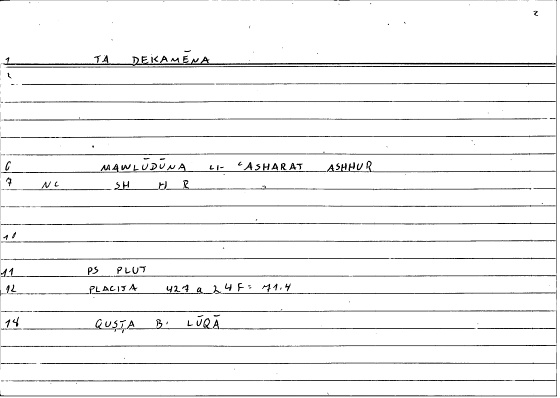 2
1 TA DEKAMĒNA
2
6 MAWLŪDŪNA LI- ʿASHARAT ASHHUR
7 NC SH H R
11
11 PS PLUT
12 PLACITA 427 a 24 F = 71.4
14 QUSṬA B. LŪQĀ